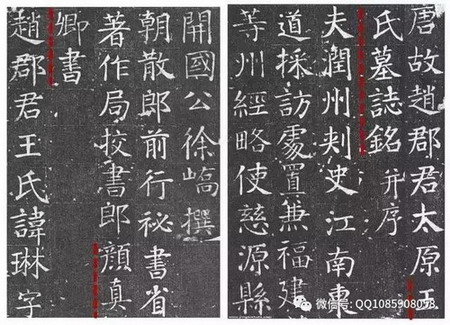 唐故趙郡君太原王
氏墓誌銘并序
夫潤州刾史江南東
道採訪處置兼福建
等州經略使慈源縣
開國公徐嶠撰
朝散郎前行祕書省
著作局挍書郎顏真
卿書
趙郡君王氏諱琳字
微信号: QQ1085908098